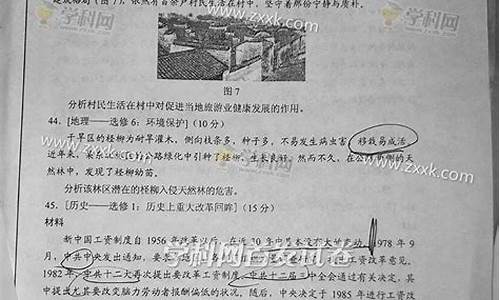 建成格局（图7），依然有百余户村民生活在村中，坚守着那份宁静与质朴。
图7
分析村民生活在村中对促进当地旅游业健康发展的作用。
44. [地理——选修6：环境保护]（10分）
干旱区的柽柳为耐旱灌木，侧向枝条多，种子多，不易发生病虫害，移栽易成活。
近年来，某 林 公路绿化中引种了柽柳，生长良好。然而不久，在公路 侧的天
然林中，发现了柽柳幼苗。
分析该林区潜在的柽柳入侵天然林的危害。
45. [历史——选修1：历史上重大改革回眸]（15分）
材料
新中国工资制度自1956年改革以后，在近30年中基本没有大的变动。1978年9
月，中共中央发出通知，要 工资改革意见。
1982年，中共十二大再次提出要改革工资制度。中共十二届三中全会通过有关决定，其
中提出尤其要改变脑力劳动者报酬偏低的状况。随后，中央决定于1985年进行工资改
学科网首发试卷
学科网
www.zxxk.com
学科网
www.zxxk.com
www.zxxk.com
学科网
www.zxxk.com